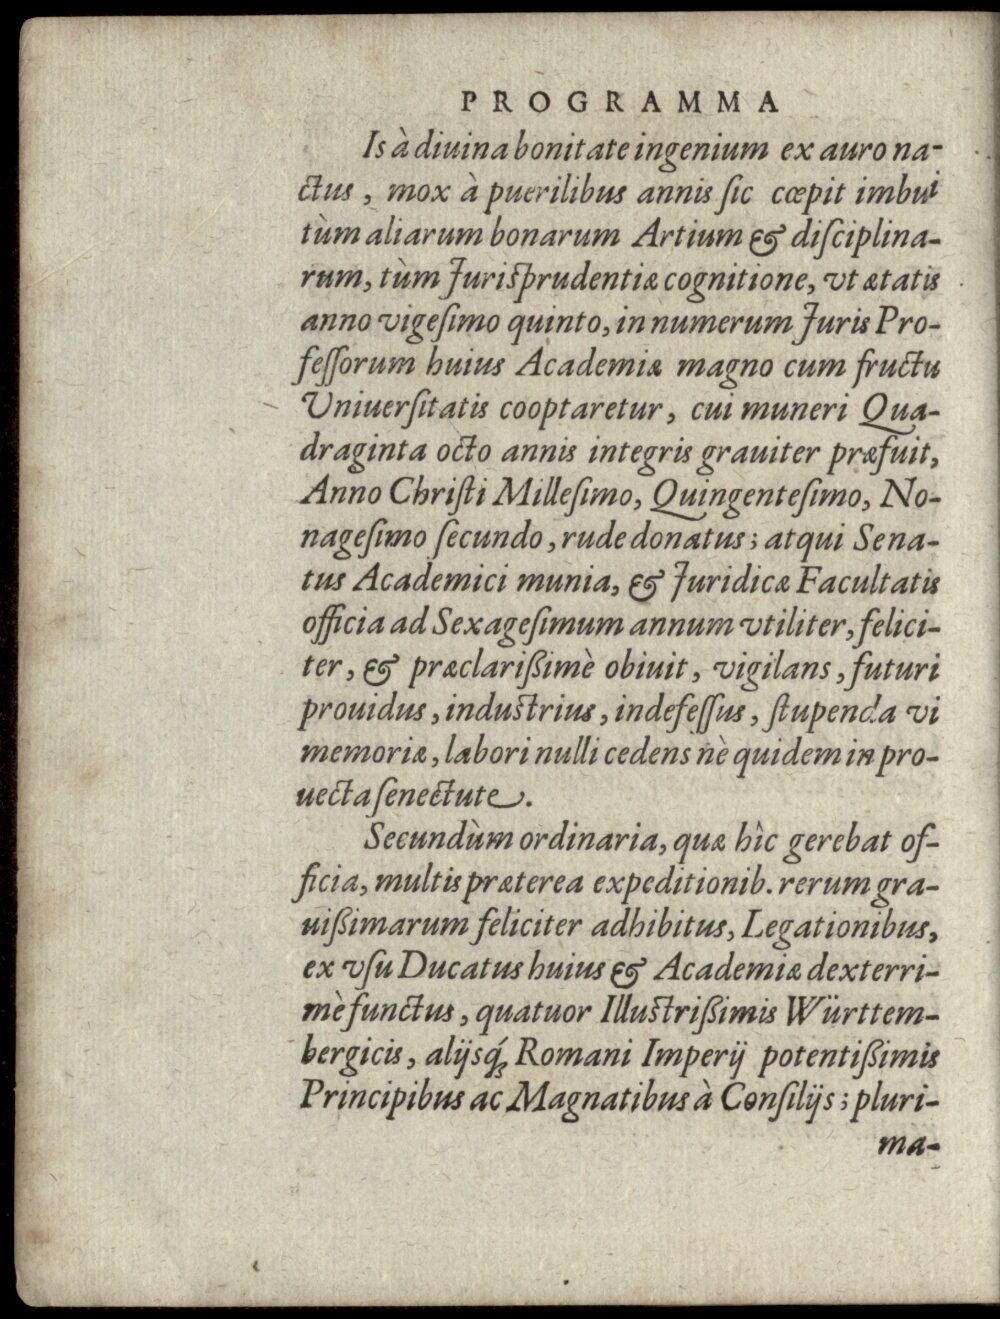 PROGRAMMA
Is à diuina bonitate ingenium ex auro na-
ctus, mox à puerilibus annis ſic cœpit imbui
tùm aliarum bonarum Artium & diſciplina-
rum, tùm Jurisprudentiæ cognitione, vt ætatis
anno vigeſimo quinto, in numerum Juris Pro-
feſſorum huius Academiæ magno cum fructu
Vniuerſitatis cooptaretur, cui muneri Qua-
draginta octo annis integris grauiter præfuit,
Anno Chriſti Milleſimo, Quingenteſimo, No-
nageſimo ſecundo, rude donatus; atqui Sena-
tus Academici munia, & Juridicæ Facultatis
officia ad Sexageſimum annum vtiliter, felici-
ter, & præclarißimè obiuit, vigilans, futuri
prouidus, industrius, indefeſſus, ſtupenda vi
memoriæ, labori nulli cedens nè quidem in pro-
uecta ſenectute.
Secundùm ordinaria, quæ hîc gerebat of-
ficia, multis præterea expeditionib. rerum gra-
uißimarum feliciter adhibitus, Legationibus,
ex vſu Ducatus huius & Academiæ dexterri-
mè functus, quatuor Illustrißimis Württem-
bergicis, alijsq́; Romani Imperij potentißimis
Principibus ac Magnatibus à Conſilijs; pluri-
ma-